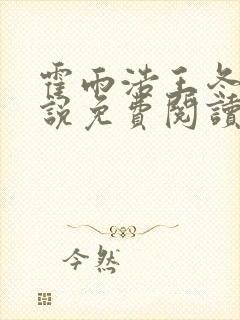 霍雨浩王冬
說免費閱讀
今然